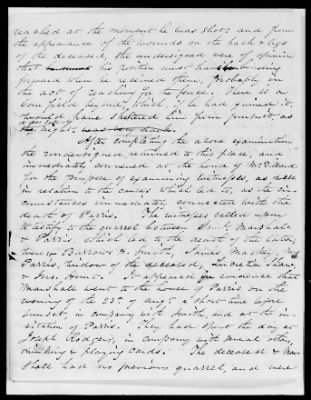 reached at the moment he was shot: and from
the appearance of the wounds on the back & legs
of the deceased, the undersigned were of opinion
that his position must have been
forward when he received them, probably in
the act of reaching for the fence. There is a
cornfield beyond, which, if he had gained it,
would have sheltered him from pursuit, as
the night was very dark.
After completing the above examination
the undersigned returned to this place, and
immediately convened at the house of
for the purpose of examining witnesses, as well
in relation to the causes which led to, as the cir-
cumstances immediately connected with the
death of Parris. The witnesses called upon
to testify to the quarrel between Smith, Marshall
& Parris, which led to the death of the latter,
were; Barlow H. Smith, James
Parris, widow of the deceased
& Mrs. It appeared in evidence that
Marshall went to the house of Parris on the
evening of the 23d of Augt. a short time before
sunset, in company with Smith, and at the in-
vitation of Parris. They had spent the day at
Joseph Rodgers, in company with several others,
drinking & playing cards. The deceased & Mar-
shall had no previous quarrel, and were